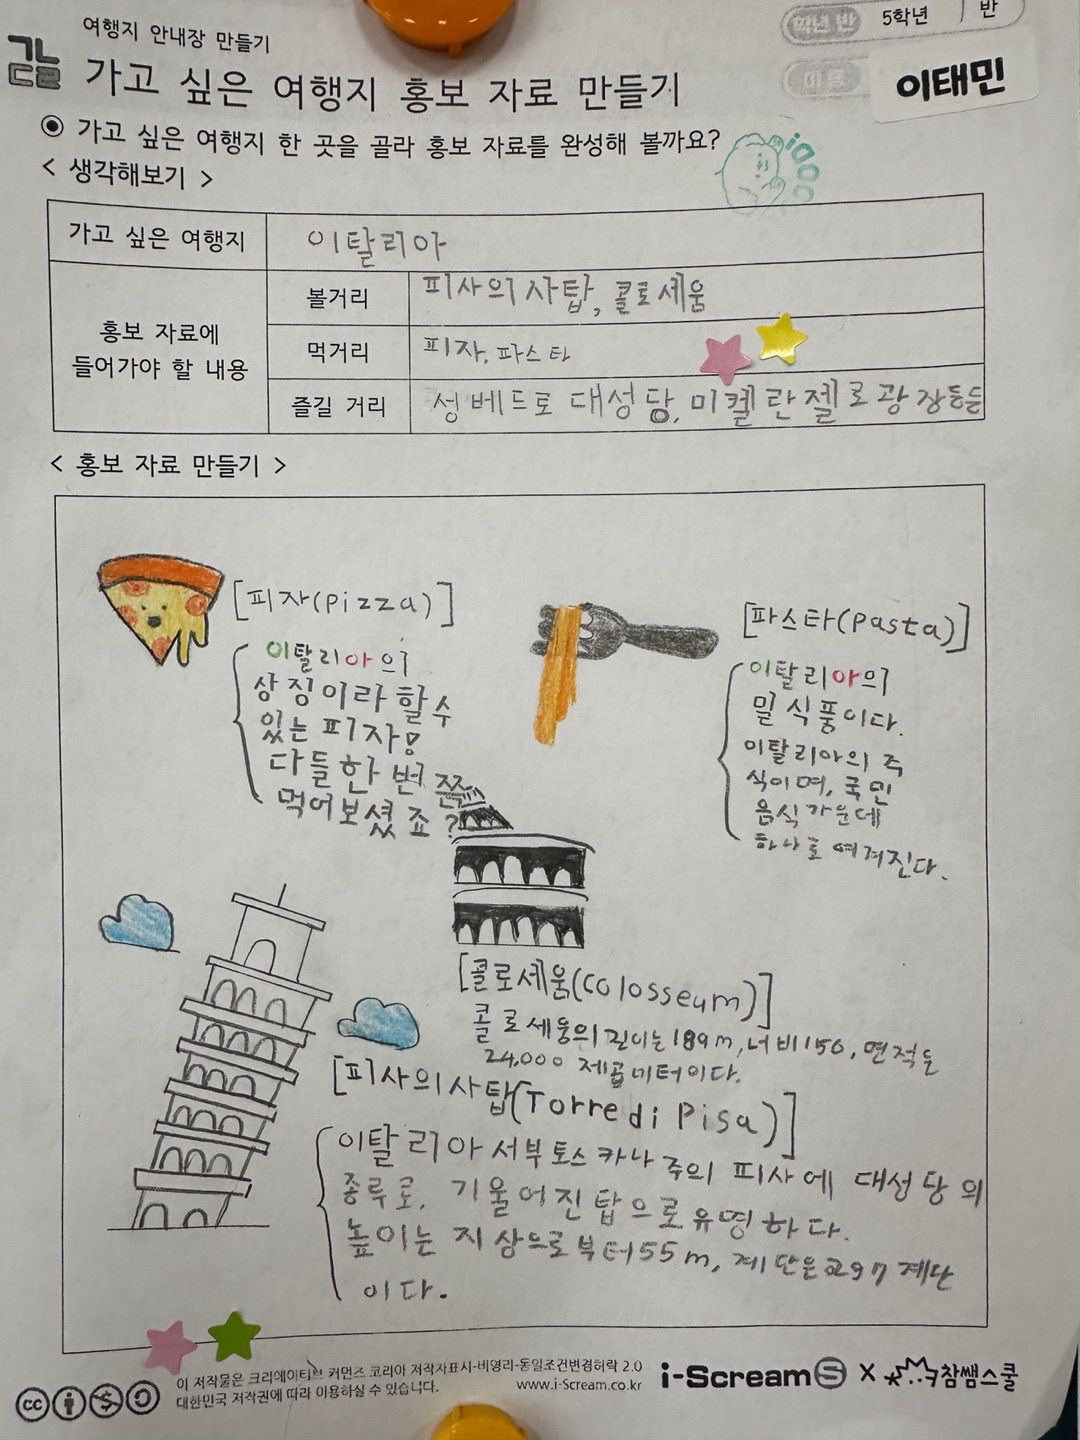 여행지 안내장 만들기
가고 싶은 여행지 홍보 자료 만들기
학년 반 5학년 1 반
이름 이태민
가고 싶은 여행지 한 곳을 골라 홍보 자료를 완성해 볼까요?
< 생각해보기 >
가고 싶은 여행지 이탈리아
홍보 자료에
들어가야 할 내용
볼거리 피사의 사탑, 콜로세움
먹거리 피자, 파스타
즐길 거리 성 베드토 대성당, 미켈란젤로 광장등등
< 홍보 자료 만들기 >
[피자(Pizza)]
이탈리아의
상징이라 할수
있는 피자!
다들한 번쯤
먹어보셨 죠?
[파스타(Pasta)]
이탈리아의
밀 식품이다.
이탈리아의 주
식이며, 국민
음식 가운데
하나로 여겨진다.
[콜로세움(Colosseum)]
콜로세움의 길이는 189m, 너비 156, 면적은
24,000 제곱미터이다.
[피사의사탑(Torre di Pisa)]
이탈리아 서부 토스카나 주의 피사에 대성당의
종루로, 기울어진 탑으로 유명하다.
높이는 지상으로부터 55m, 계단은 297 계단
이다.
이 저작물은 크리에이티브 커먼즈 코리아 저작자표시-비영리-동일조건변경허락 2.0
대한민국 저작권에 따라 이용하실 수 있습니다.
www.i-Scream.co.kr
i-Scream S X 참쌤스쿨
cc